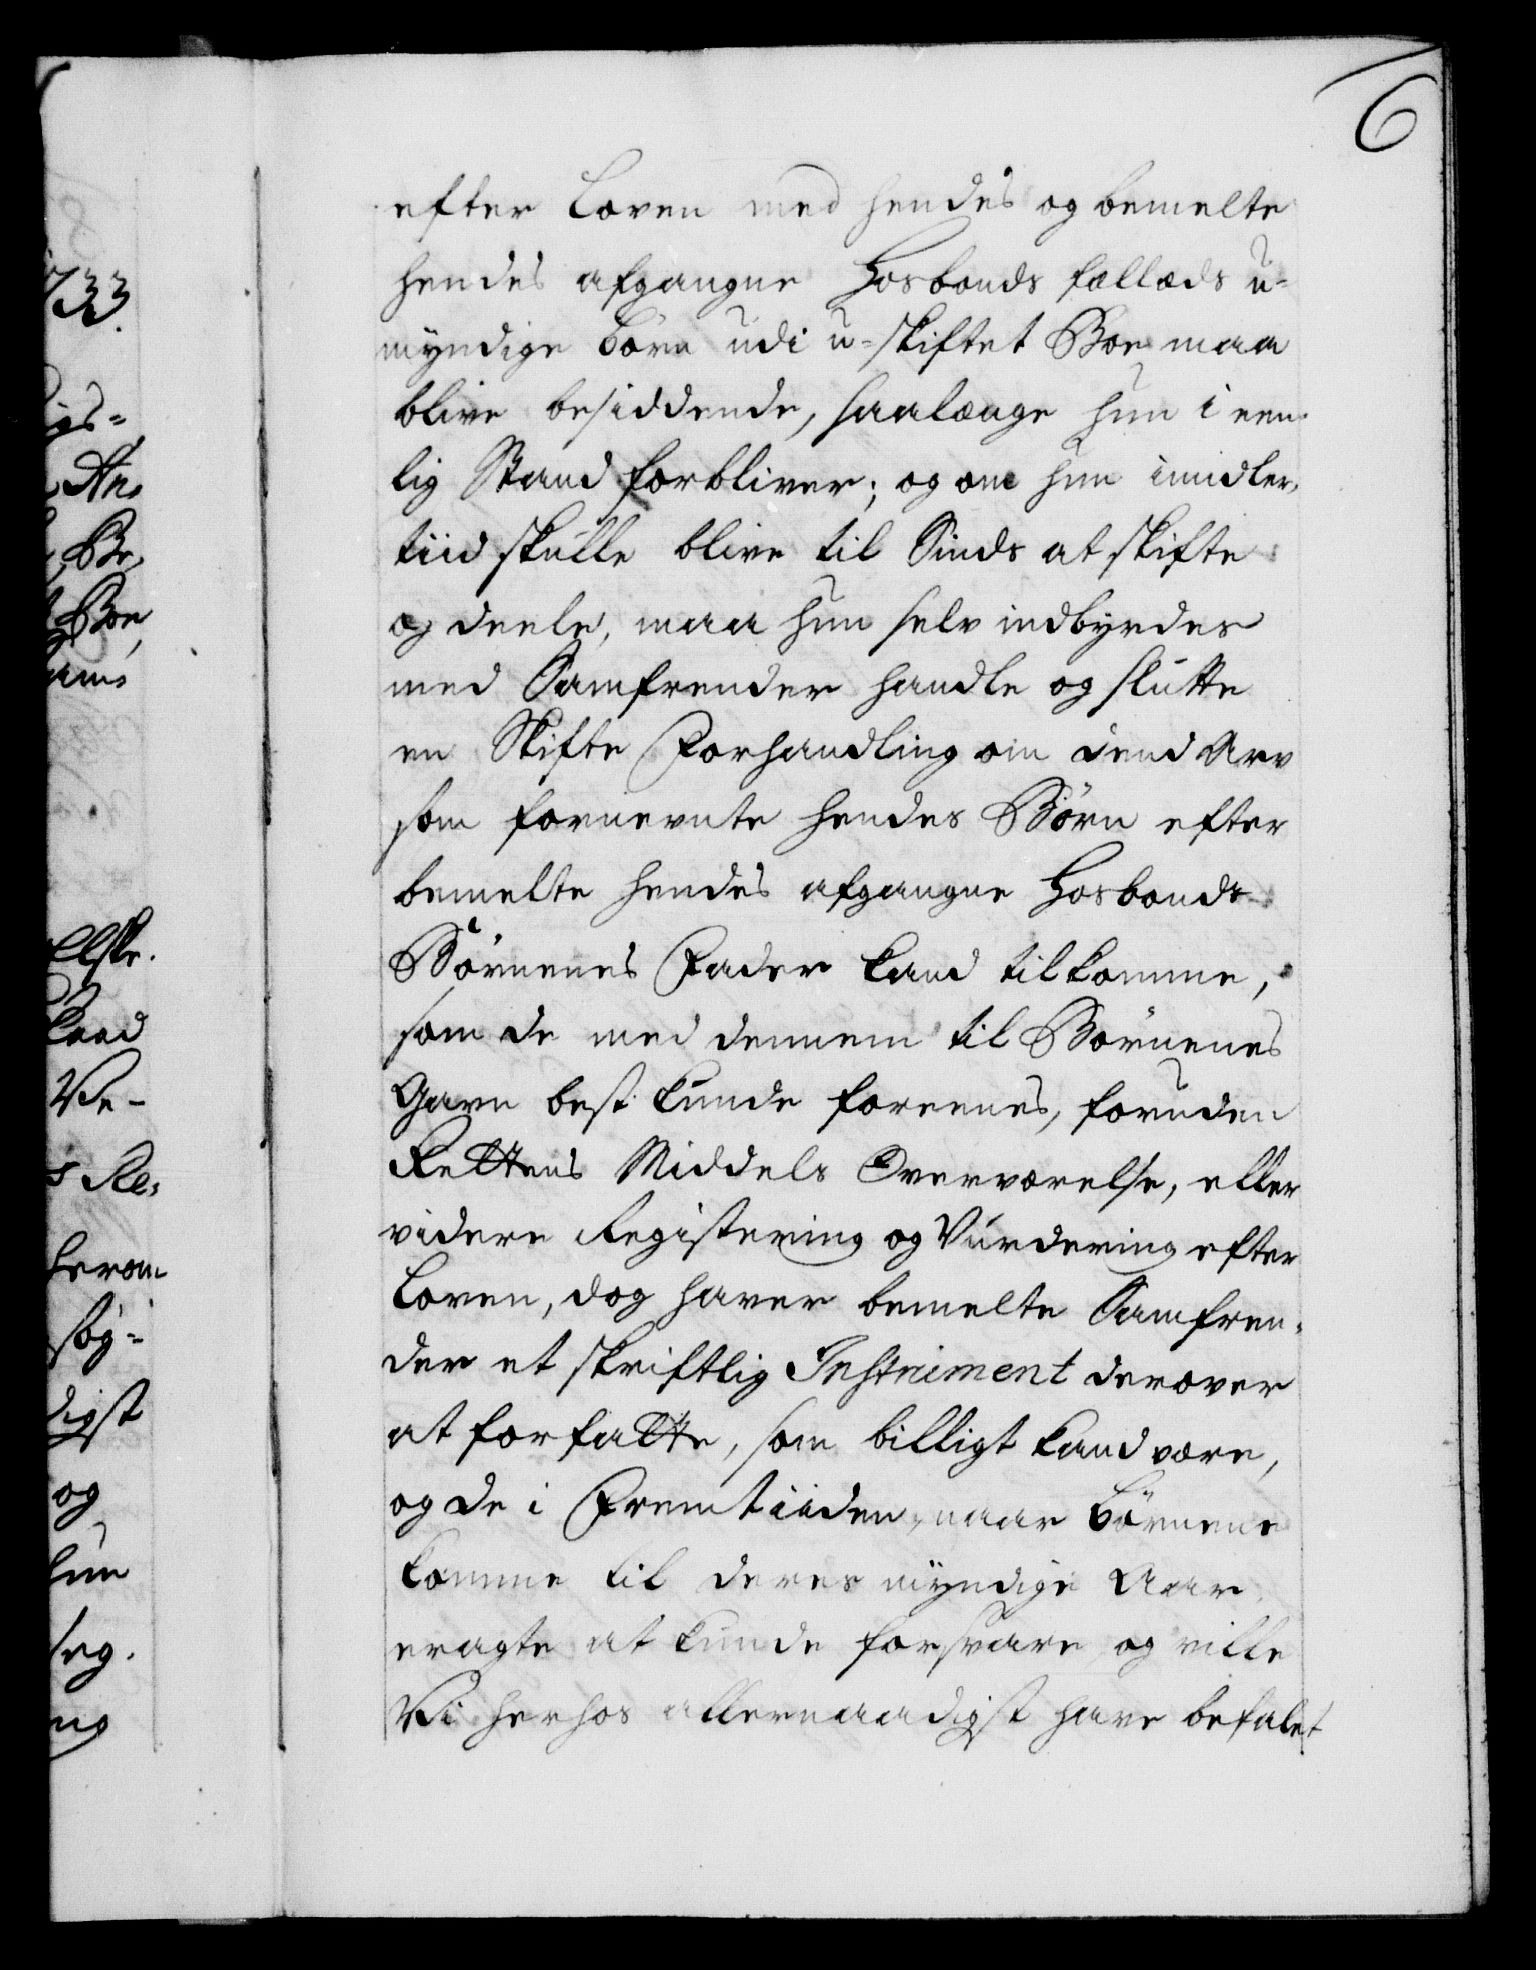 6
efter Loven med hendes og bemelte
hendes afgangne Hosbonds fælleds u-
myndige Börn udi u-skiftet Boe maa
blive besiddende, saalænge hun i een-
lig Stand forbliver; og om hun imidler-
tiid skulle blive til Sinds at skifte
og deele, maa hun selv indbyrdes
med Samfrender handle og slutte
en Skifte Forhandling om dend Arv
som fornevnte hendes Börn efter
bemelte hendes afgangne Hosbonds
Börnenes Fader kand tilkomme,
som de med dennem til Börnenes
Gavn best kunde foreenes, foruden
Rettens Middels Overværelse, eller
videre Registering og Vurdering efter
Loven, dog haver bemelte Samfren-
der et skriftlig Instrument derover
at forfatte, som billigt kand være,
og de i Fremtiiden, naar Börnene
komme til deres myndige Aar,
eragte at kunde forsvare, og ville
Vi herhos allernaadigst have befalet
733.
gs-
An-
Be-
Boe,
elske.
Raad
Ve-
s Re-
herom
söy-
digst
og
hun
seg.
ng